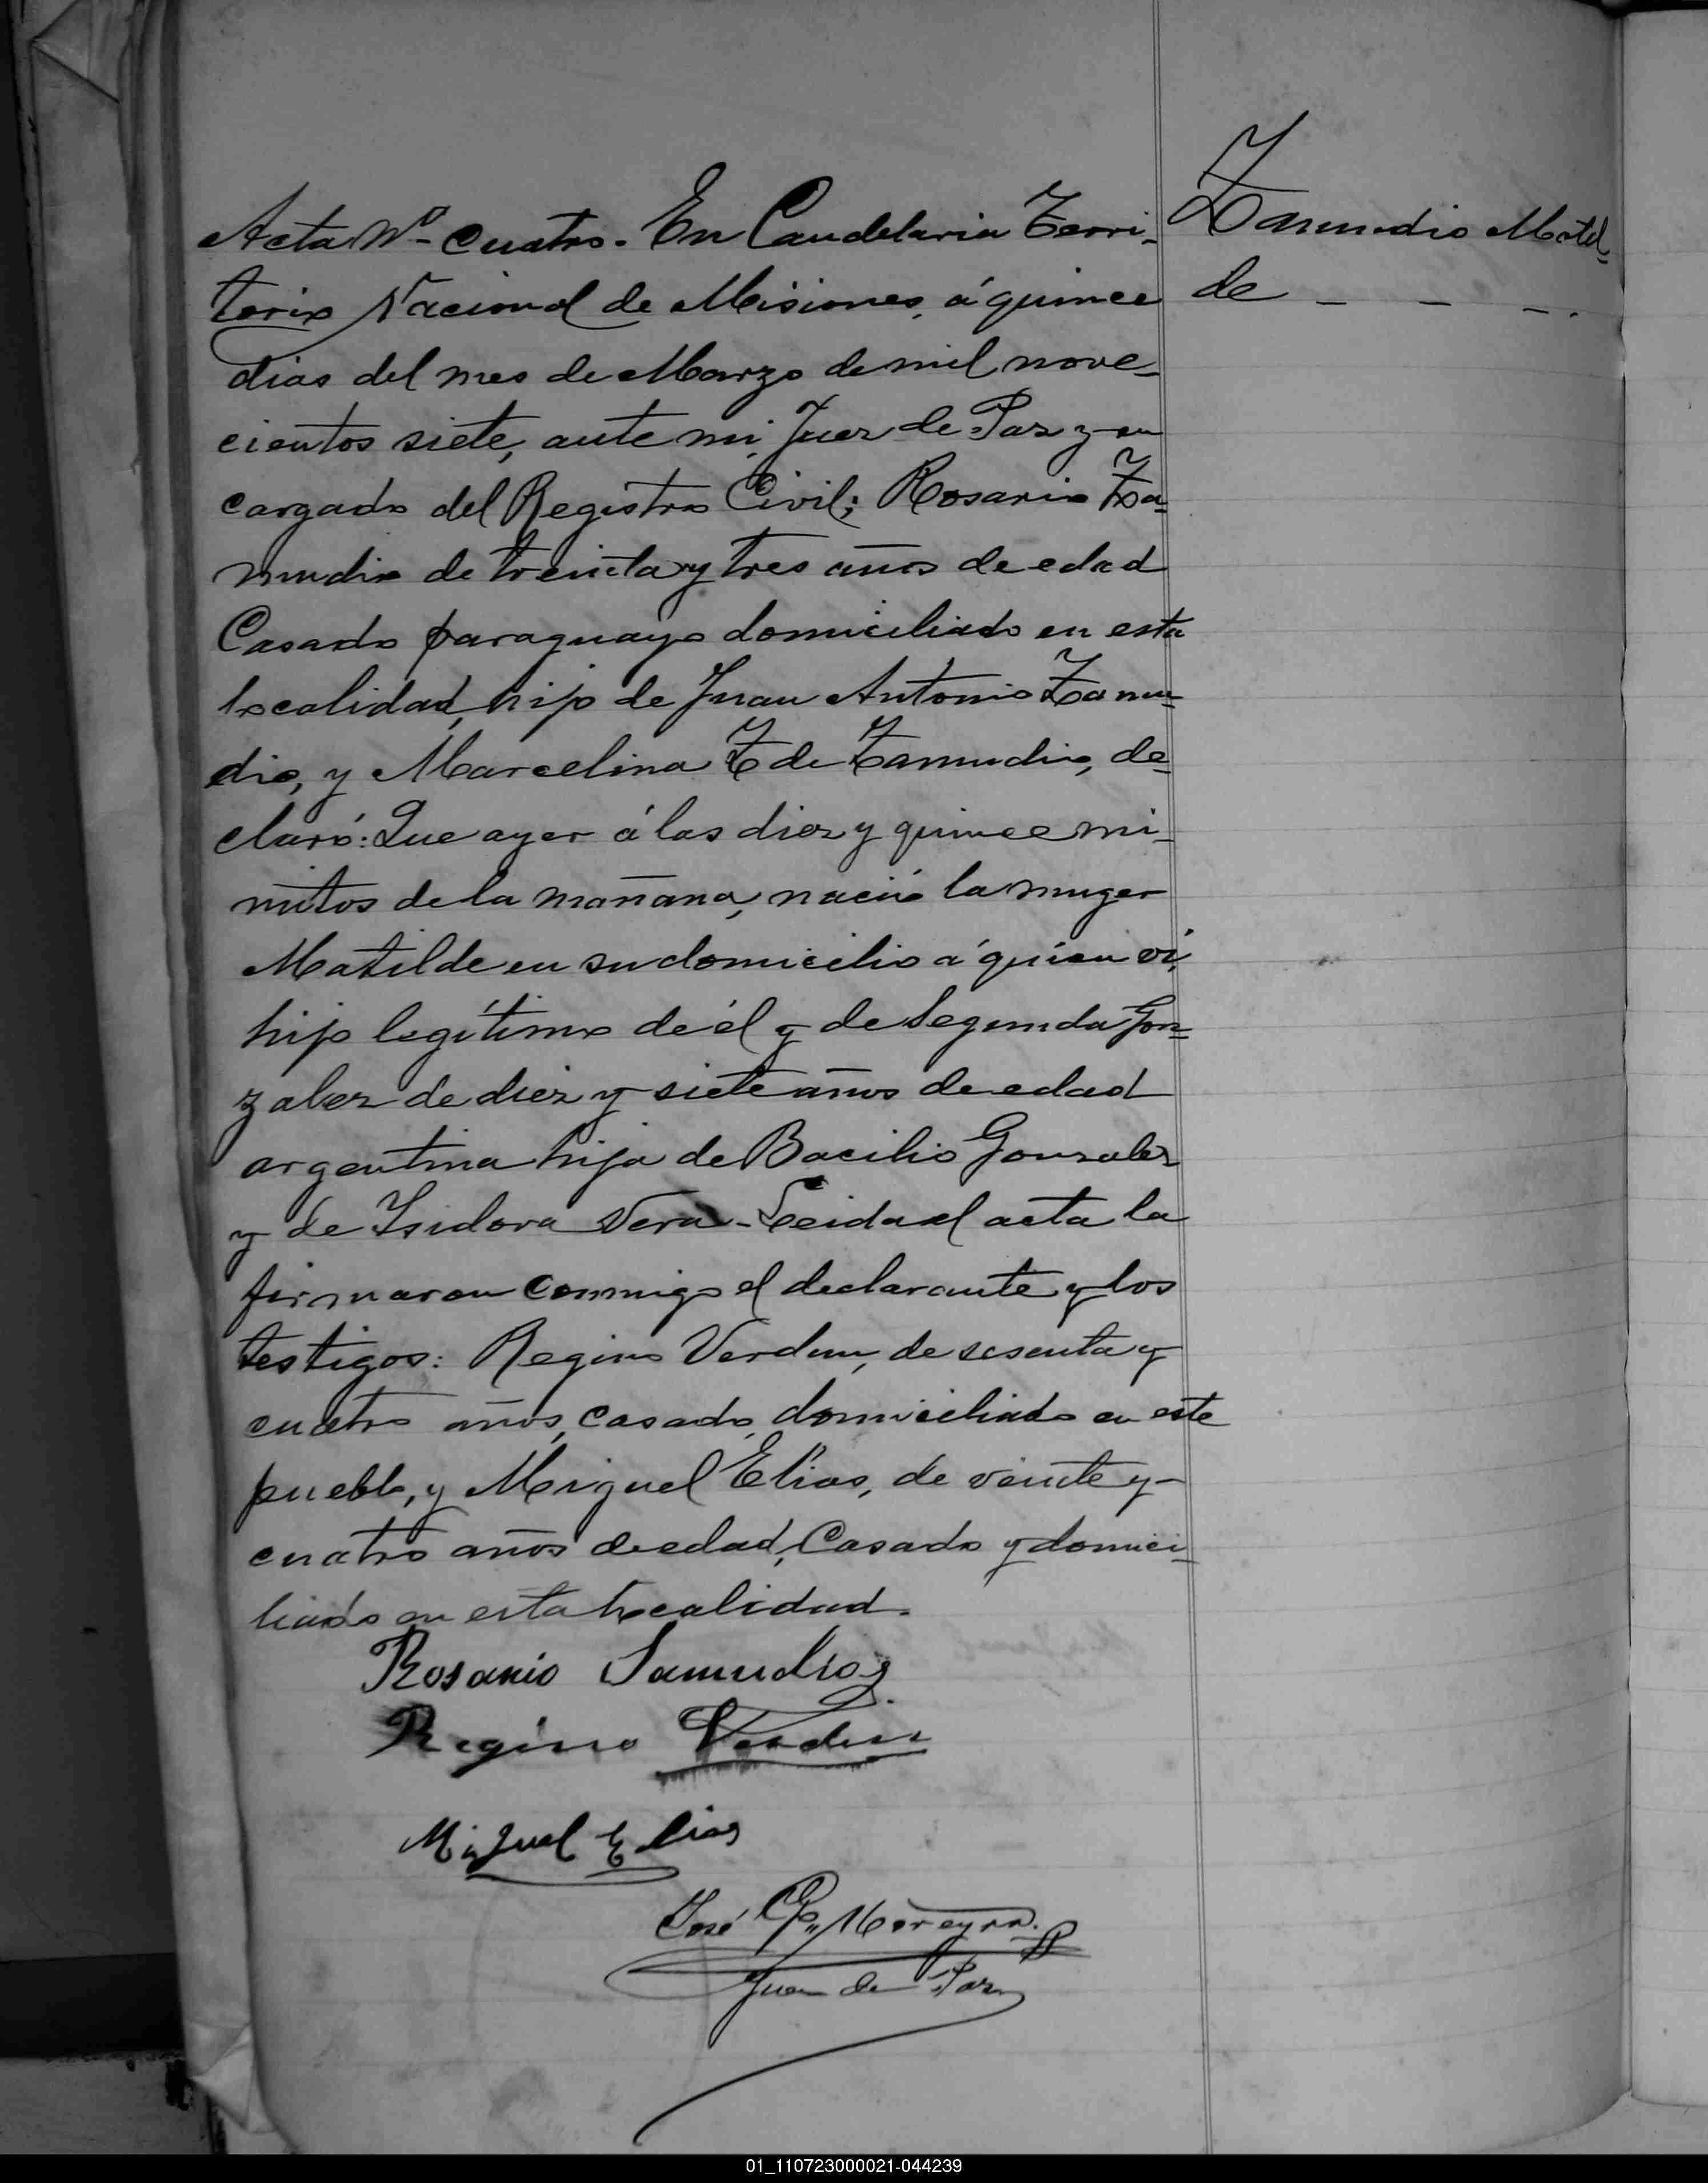 Acta Nº- cuatro. En Candelaria Terri-
torio Nacional de Misiones, á quince
dias del mes de Marzo de mil nove-
cientos siete, ante mi, Juez de Paz y en
cargado del Registro Civil; Rosario Za-
mudio de treinta y tres años de edad
Casado paraguayo domiciliado en esta
localidad, hijo de Juan Antonio Zamu-
dio, y Marcelina Z de Zamudio, de-
claró: Que ayer á las diez y quince mi-
nutos de la mañana, nació la muger
Matilde en su domicilio á quien vi,
hijo legítimo de él y de Segunda Gon-
zalez de diez y siete años de edad
argentina hija de Bacilio Gonzalez
y de Isidora Vera - Leida el acta la
firmaron conmigo el declarante y los
testigos: Regino Verdun, de sesenta y
cuatro años, casado, domiciliado en este
pueblo, y Miguel Elias, de veinte y
cuatro años de edad, Casado y domici-
liado en esta localidad.
Rosario Samudio
Regino Verdun
Miguel Elias
José Moreyra.
Juez de Paz
Zamudio Matil-
de - - -.
01_110723000021-044239